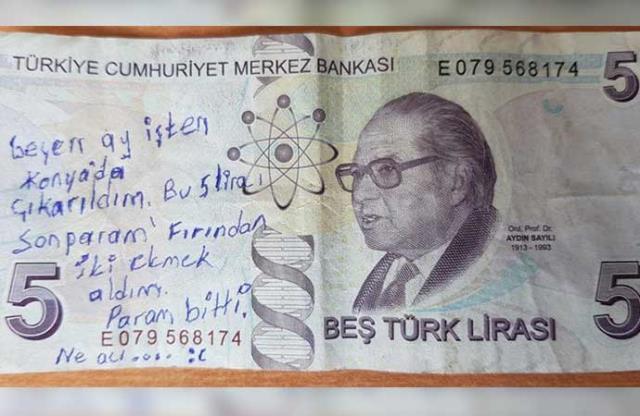 TÜRKİYE CUMHURİYET MERKEZ BANKASI
E 079 568174
5
Geçen ay işten
Konya'da
Çıkarıldım. Bu 5 lira
Son param Fırından
iki ekmek
aldım.
Param bitti.
Ne acı..... :(
Ord. Prof. Dr.
AYDIN SAYILI
1913 - 1993
5
E 079 568174
BEŞ TÜRK LİRASI
5